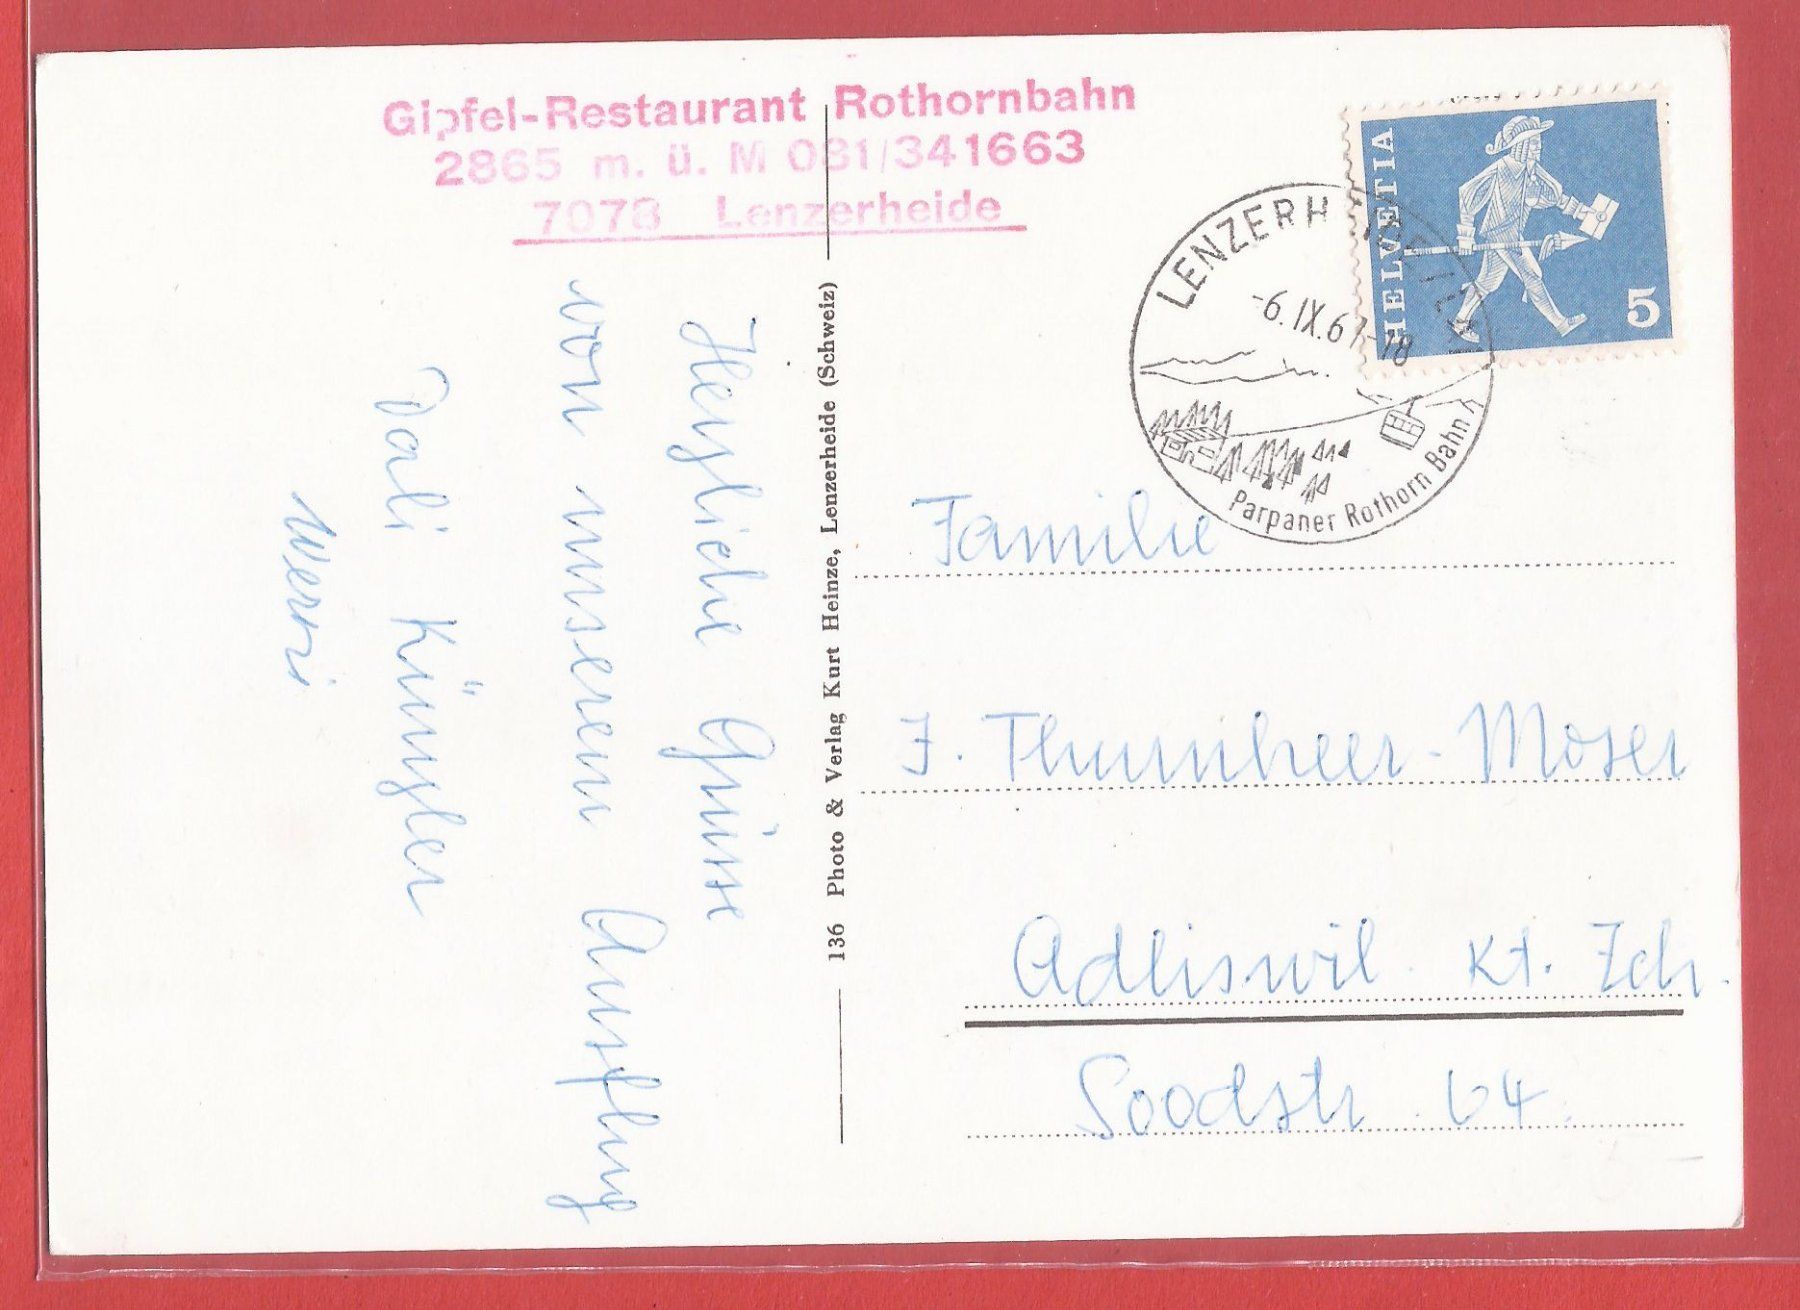 Gipfel-Restaurant Rothornbahn
2865 m. ü. M 081/341663
7078 Lenzerheide
HELVETIA
5
LENZERH
-6.IX.67-18
Parpaner Rothorn Bahn
Herzliche Grüsse
von unserem Ausflug
Künzler
Werni
136 Photo & Verlag Kurt Heinze, Lenzerheide (Schweiz)
Familie
J. Thurnheer-Moser
Adliswil Kt. Zch.
Soodstr. 64.